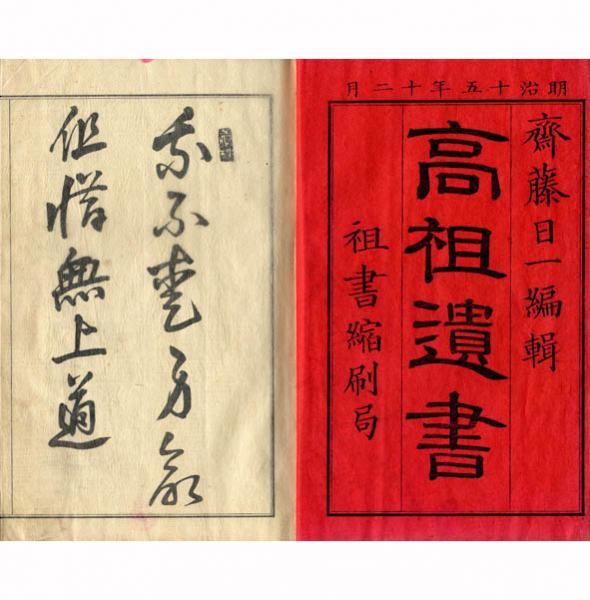 明治十五年十二月
齋藤日一編輯
高祖遺書
祖書縮刷局
我不愛身命
但惜無上道